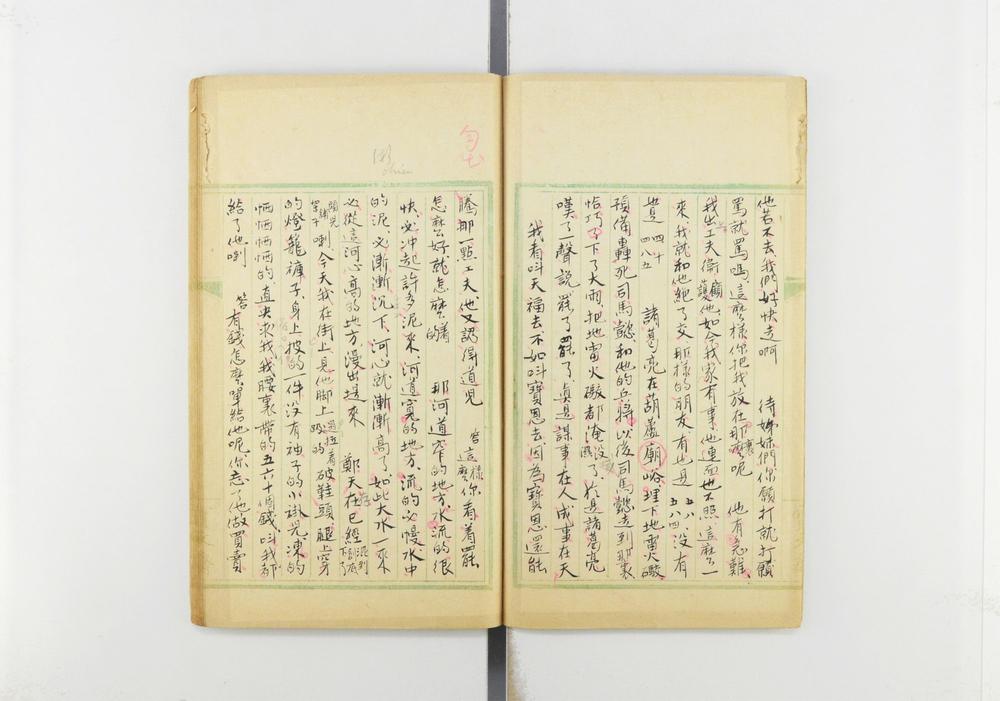 他若不去我們好快走啊 待姊妹們你願打就打願
罵就罵嗎這麼樣你把我放在那裏呢 他有急難
我出工夫衛顧他如今我家有事他連面也不照這麼一
來我就和他絕了交那樣的朋友有也是五八、没有
也是四十 諸葛亮在葫蘆廟峪埋下地雷火礮
預備轟死司馬懿和他的兵將以後司馬懿走到那裏
恰巧下了大雨把地雷火礮都淹没了於是諸葛亮
嘆了一聲說罷了罷了真是謀事在人成事在天
我看叫天福去不如叫寶恩去因為寶恩還能
騰那一點工夫他又認得道兒 答這麼樣你看着罷
怎麼好就怎麼的 那河道窄的地方水流的很
快必冲起許多泥來河道寬的地方流的必慢水中
的泥必漸漸沉下河心就漸漸高了如此大水一來
必從這河心高的地方漫出堤來 鄭天在已經
喇今天我在街上見他脚上破鞋頭腿上穿
的燈籠褲子身上披的一件没有袖子的小褂兒凍的
哂哂哂哂的直央求我我腰裏帶的五六十個錢叫我都
給了他喇 答有錢怎麼單給他呢你忘了他做買賣